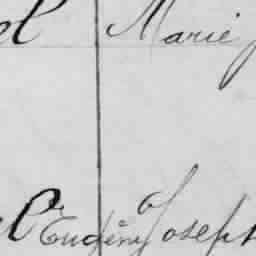 el Marie
el Eugène Joseph